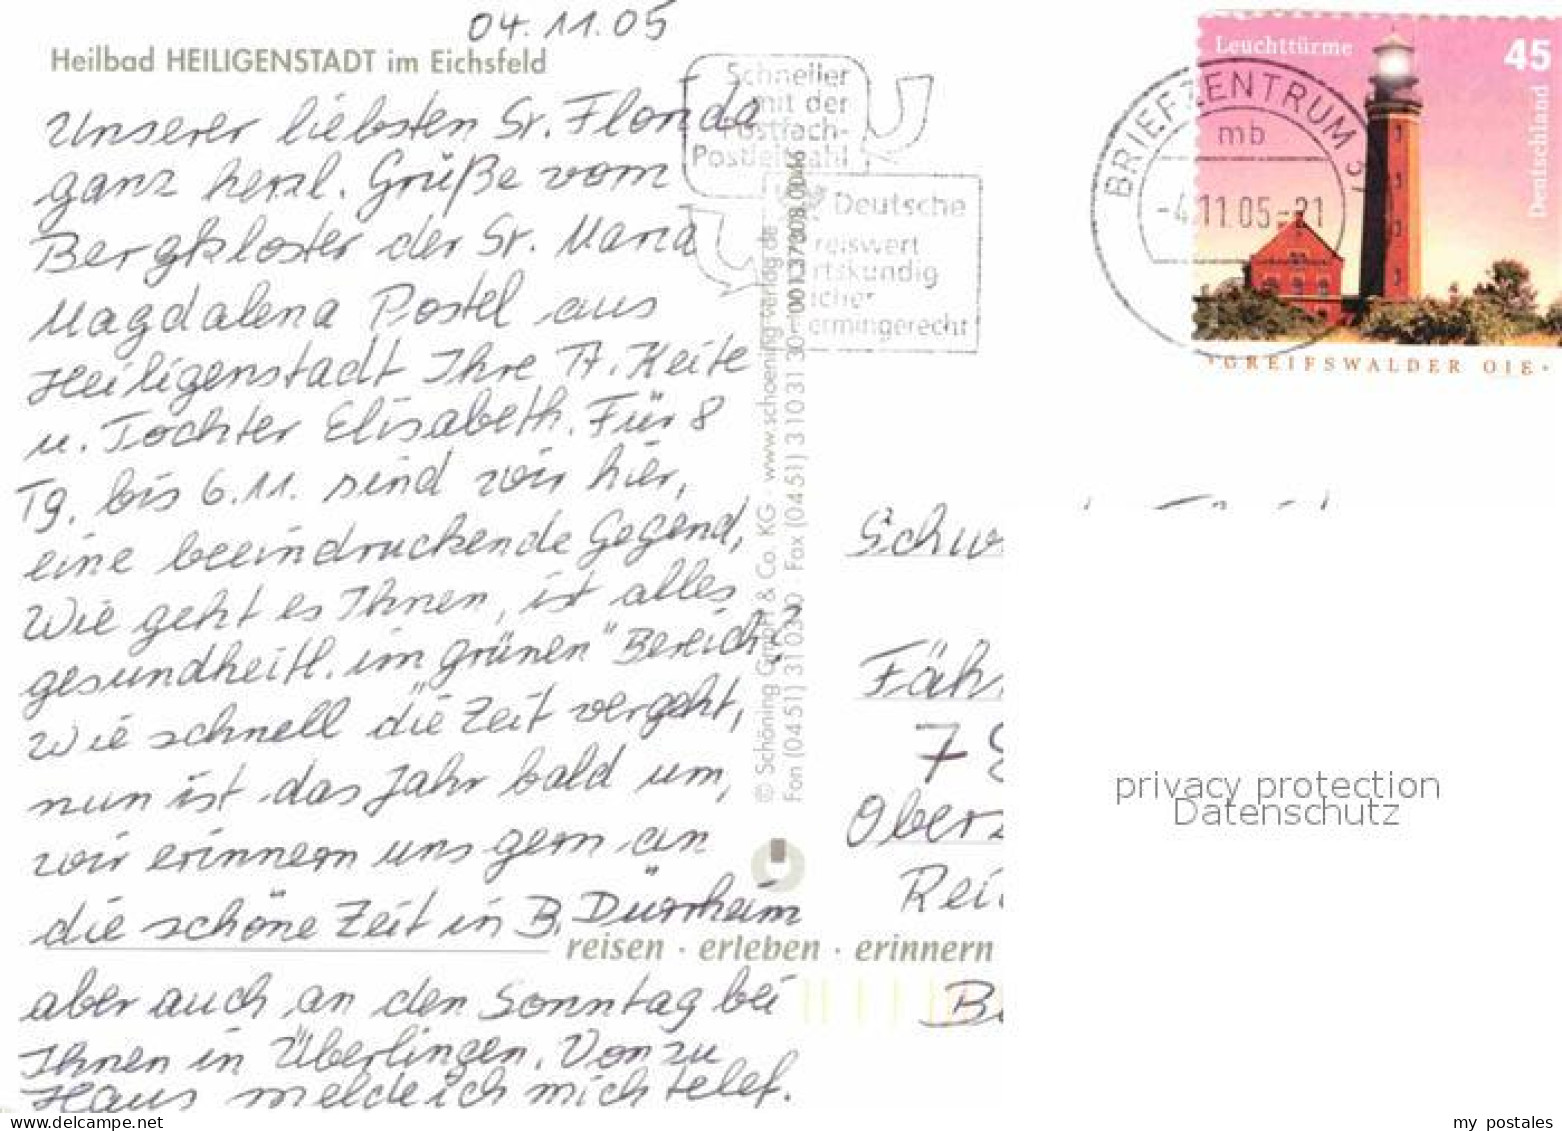 04.11.05
Heilbad HEILIGENSTADT im Eichsfeld
Unserer liebsten Sr. Florida
ganz herzl. Grüße vom
Bergkloster der Sr. Maria
Magdalena Postel aus
Heiligenstadt Ihre A. Keite
u. Tochter Elisabeth. Für 8
Tg. bis 6.11. sind wir hier,
eine beeindruckende Gegend,
Wie geht es Ihnen, ist alles
gesundheitl. im "grünen" Bereich?
Wie schnell die Zeit vergeht,
nun ist das Jahr bald um,
wir erinnern uns gern an
die schöne Zeit in B. Dürrheim
aber auch an den Sonntag bei
Ihnen in Überlingen. Von zu
Haus melde ich mich telef.
reisen · erleben · erinnern
© Schöning GmbH & Co. KG · www.schoening-verlag.de
Fon (0451) 31 03 30 · Fax (0451) 3 10 31 30
Schneller
mit der
Postfach-
Postleitzahl
Deutsche
reiswert
rtskundig
icher
ermingerecht
BRIEFZENTRUM 37
mb
-4.11.05-21
Leuchttürme
45
Deutschland
·GREIFSWALDER OIE·
Schw
Fäh
7
Ober
Rei
B
privacy protection
Datenschutz
www.delcampe.net
my_postales